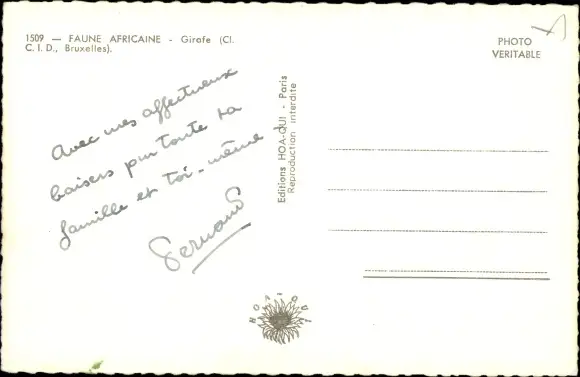 1509 — FAUNE AFRICAINE - Girafe (Cl.
C. I. D., Bruxelles).
PHOTO
VERITABLE
Avec mes affectueux
baisers pour toute ta
famille et toi-même
Editions HOA-QUI - Paris
Reproduction interdite
HOA-QUI